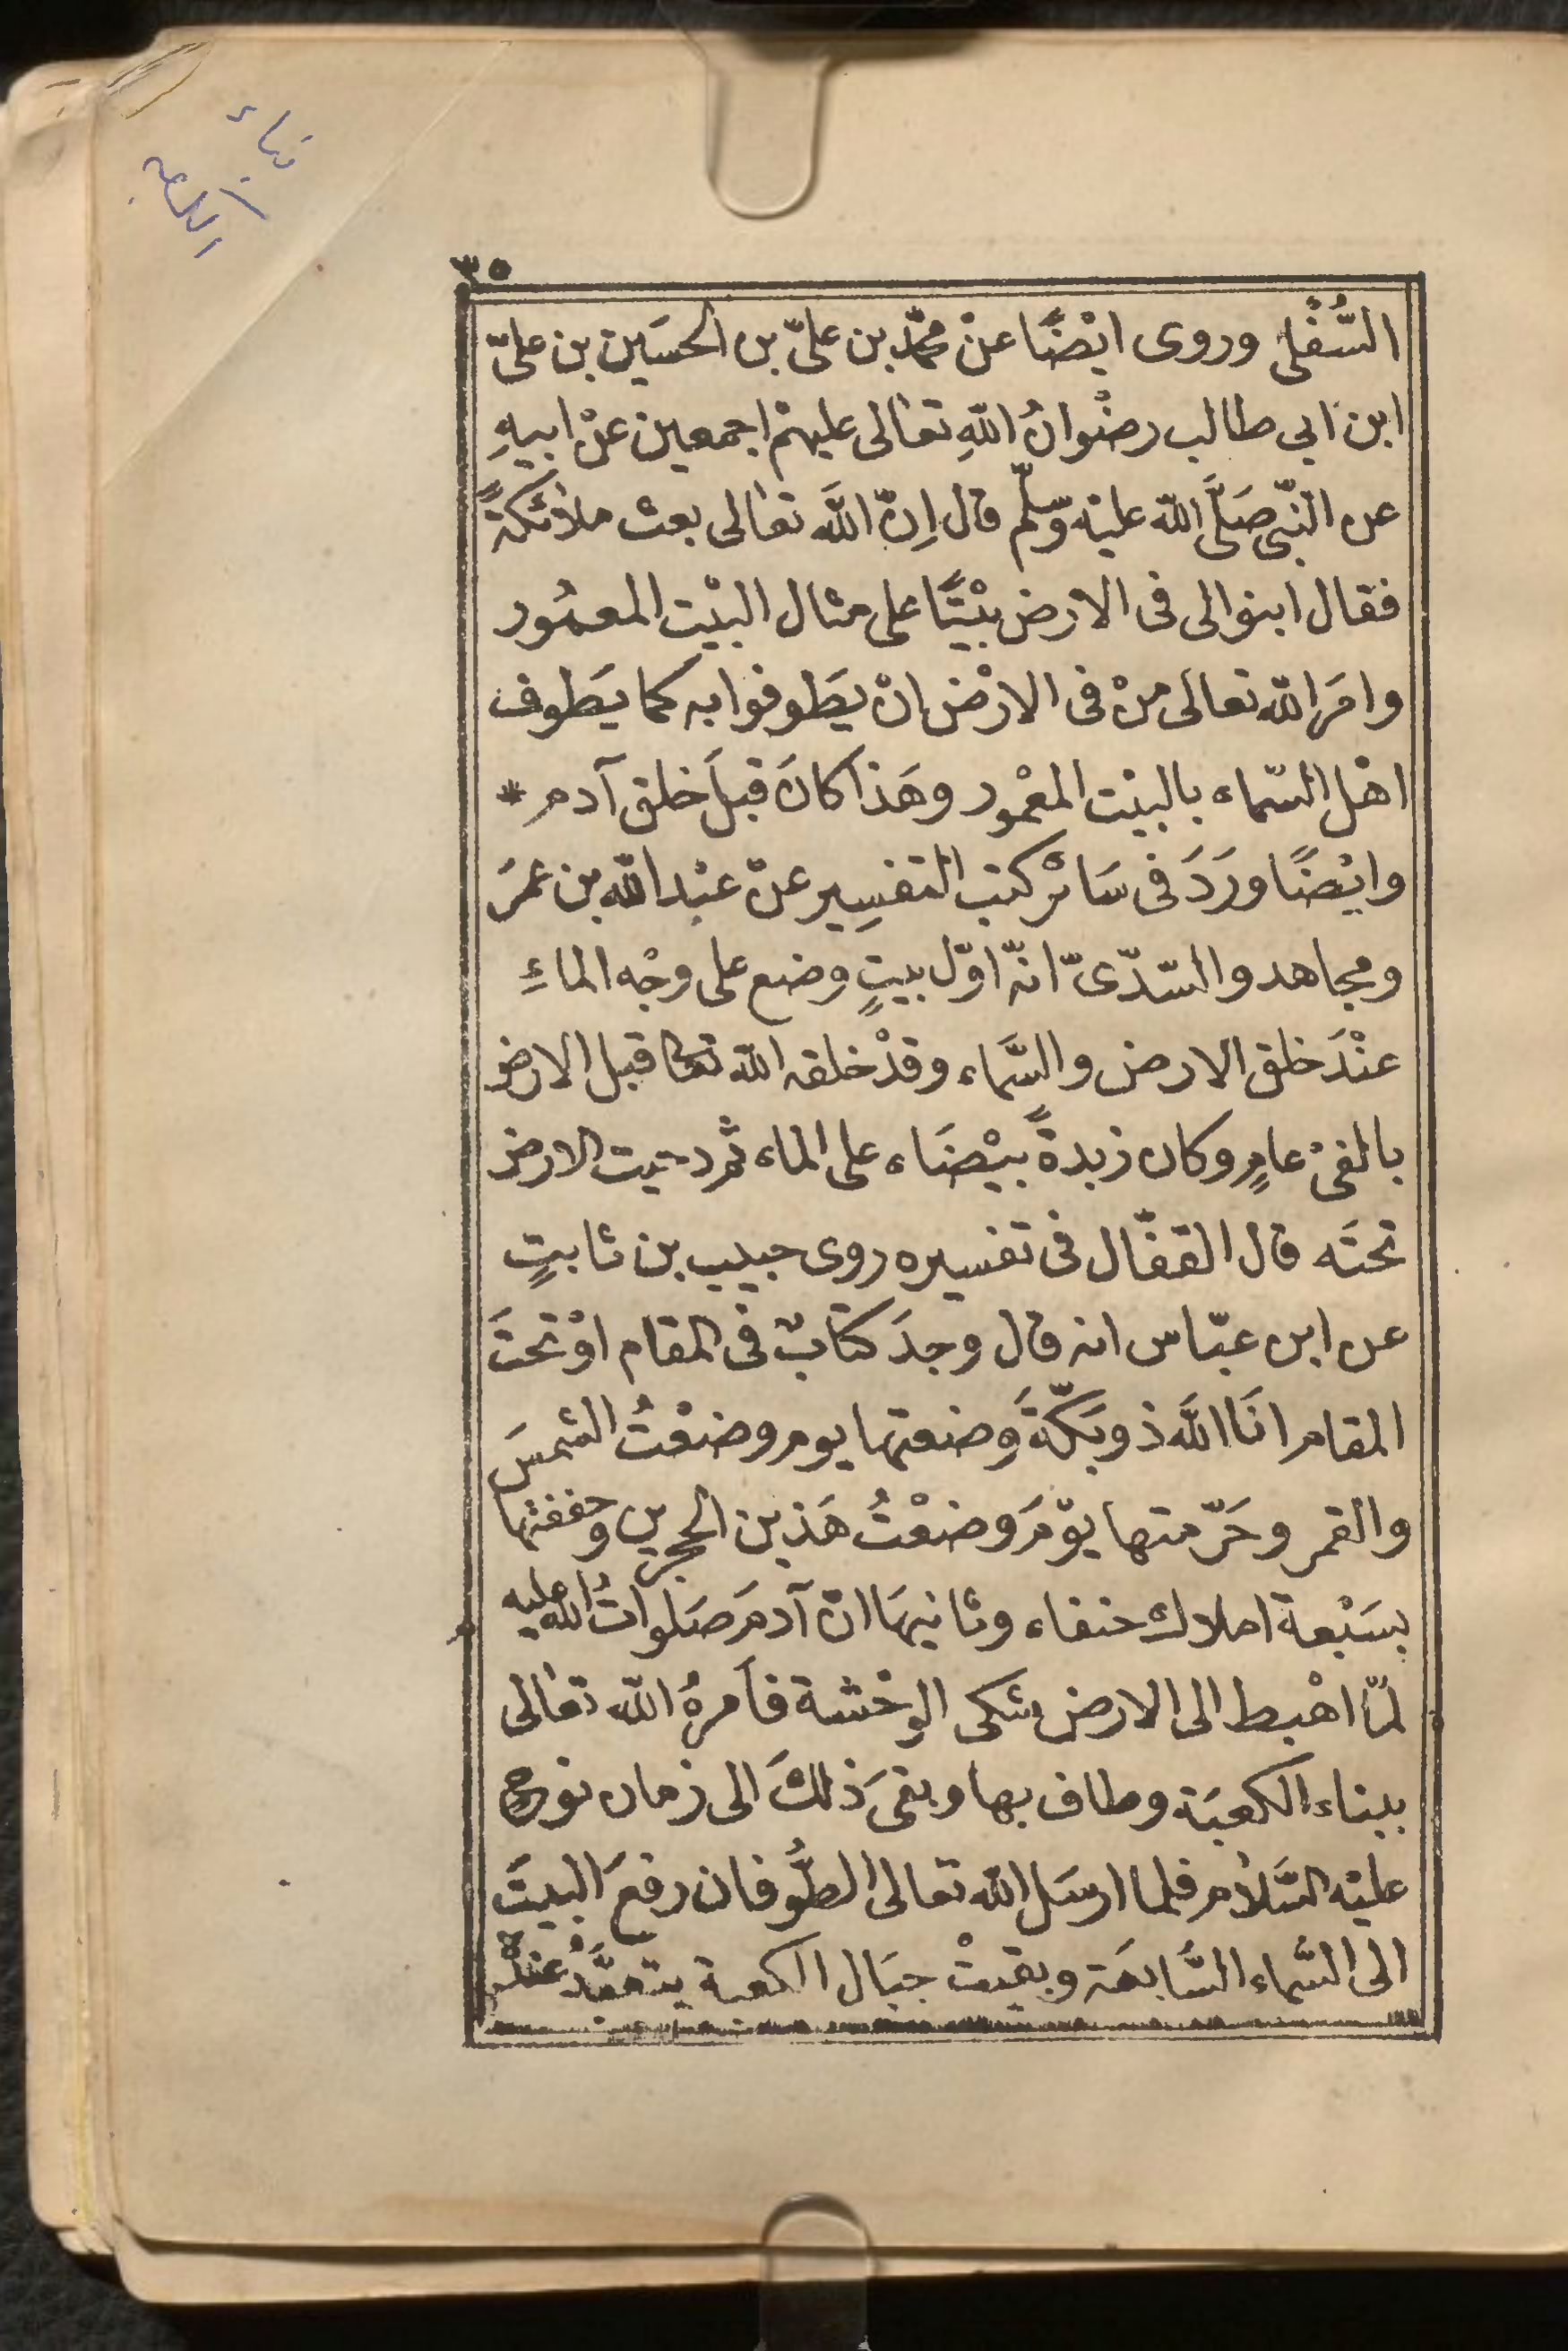 بناء
الكعبه
٣٥
السُّفْلى وروى ايْضًا عنْ محمّد بن علىّ بن الحسَين بن علىّ
ابن ابي طالب رضْوانُ اللّٰهِ تعٰالى عليهمْ اجمعين عنْ ابيهِ
عن النّبى صَلَّى اللّٰه عليْه وسلّم قال اِنّ اللَّه تعٰالى بعث ملائكةً
فقال ابنوالى فى الارْض بيْتًا على مثال البيْت المعمُور
وامَر اللّٰه تعالى منْ فى الارْض انْ يطَوفوا به كما يطَوف
اهْل السّماء بالبيْت المعْمور وهَذا كانَ قبلَ خلق آدم *
وايْضًا ورَدَ فى سَائر كتب التفسِير عنْ عبْد اللّٰه بن عمرَ
ومجاهد والسّدّىّ انّه اوّل بيتٍ وضع على وجْه الماءِ
عنْدَ خلق الارض والسَّماء وقدْ خلقه اللّٰه تعالى قبل الارض
بالفىْ عامٍ وكان زبدةً بيْضَاء على الماء ثم دحيت الارض
تحتَه قال القفّال فى تفسيره روى حبيب بن ثابتٍ
عن ابن عبّاس انه قال وجدَ كتابٌ فى المقام اوْ تحتَ
المقام انَا اللَّه ذو بَكّةَ وضعتها يوم وضعْتُ الشمسَ
والقمر وحَرّمتها يوْمَ وضعْتُ هَذين الحجرين وحففتها
بسَبْعة املاك حنفاء وثانيهَا انّ آدمَ صَلواتُ اللّٰه عليه
لمّا اهْبط الى الارض شكى الوحْشة فاَمرهُ اللّٰه تعٰالى
ببناء الكعبَة وطاف بها وبقىَ ذلكَ الى زمان نوحٍ
عليْه السَّلام فلما ارسَل اللّٰه تعالى الطُّوفان رفعَ البيتَ
الى السَّماء السَّابعَة وبقيتْ جبَال الكعبة يتعبَّدُ عنْدهُ